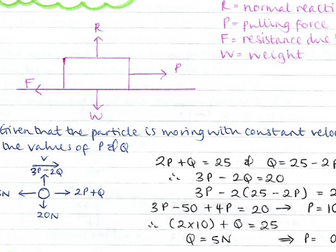 R = normal reacti
P = pulling force
F = resistance due
W = weight
R
F
P
W
Given that the particle is moving with constant veloc
the values of P & Q
V
3P-2Q
5N
2P+Q
20N
2P+Q = 25 & Q = 25-2P
∴ 3P-2Q = 20
3P-2(25-2P) = 2
3P-50+4P = 20 → P = 10
∴ (2x10) + Q = 25
Q = 5N
P =